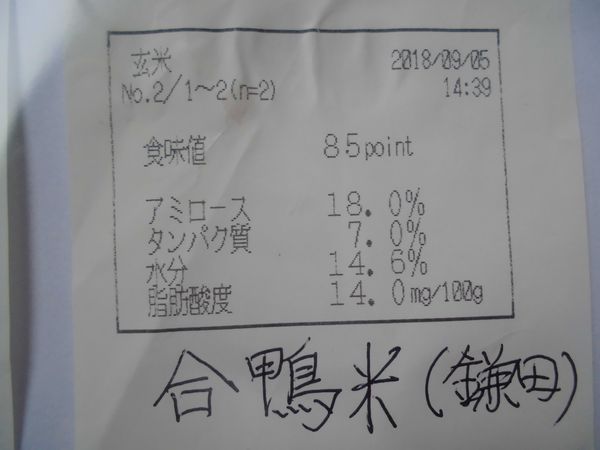 玄米 2018/09/05
No.2/1~2(n=2) 14:39
食味値 85point
アミロース 18.0%
タンパク質 7.0%
水分 14.6%
脂肪酸度 14.0mg/100g
合鴨米(鎌田)